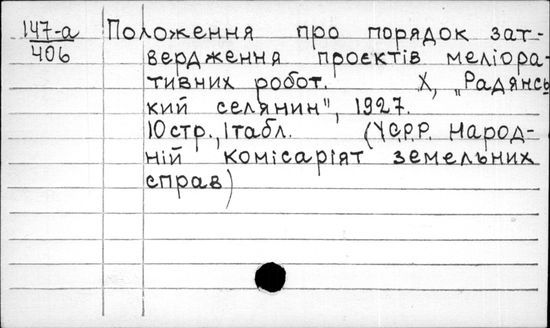 147-а Положення про порядок зат-
406 вердження проєктів меліора-
тивних робот. Х, „Радянсь
кий селянин", 1927.
10 стр., 1 табл. (УСРР. Народ-
ній комісаріят земельних
справ)